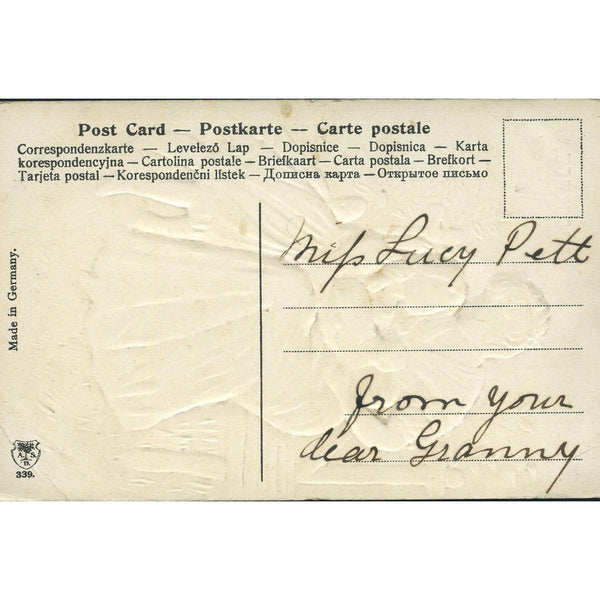 Post Card — Postkarte — Carte postale
Correspondenzkarte — Levelező Lap — Dopisnice — Dopisnica — Karta
korespondencyjna — Cartolina postale — Briefkaart — Carta postala — Brefkort —
Tarjeta postal — Korespondenčni listek — Дописна карта — Открытое письмо
Made in Germany.
Miss Lucy Pett
from your
dear Granny
A. S.
B.
339.